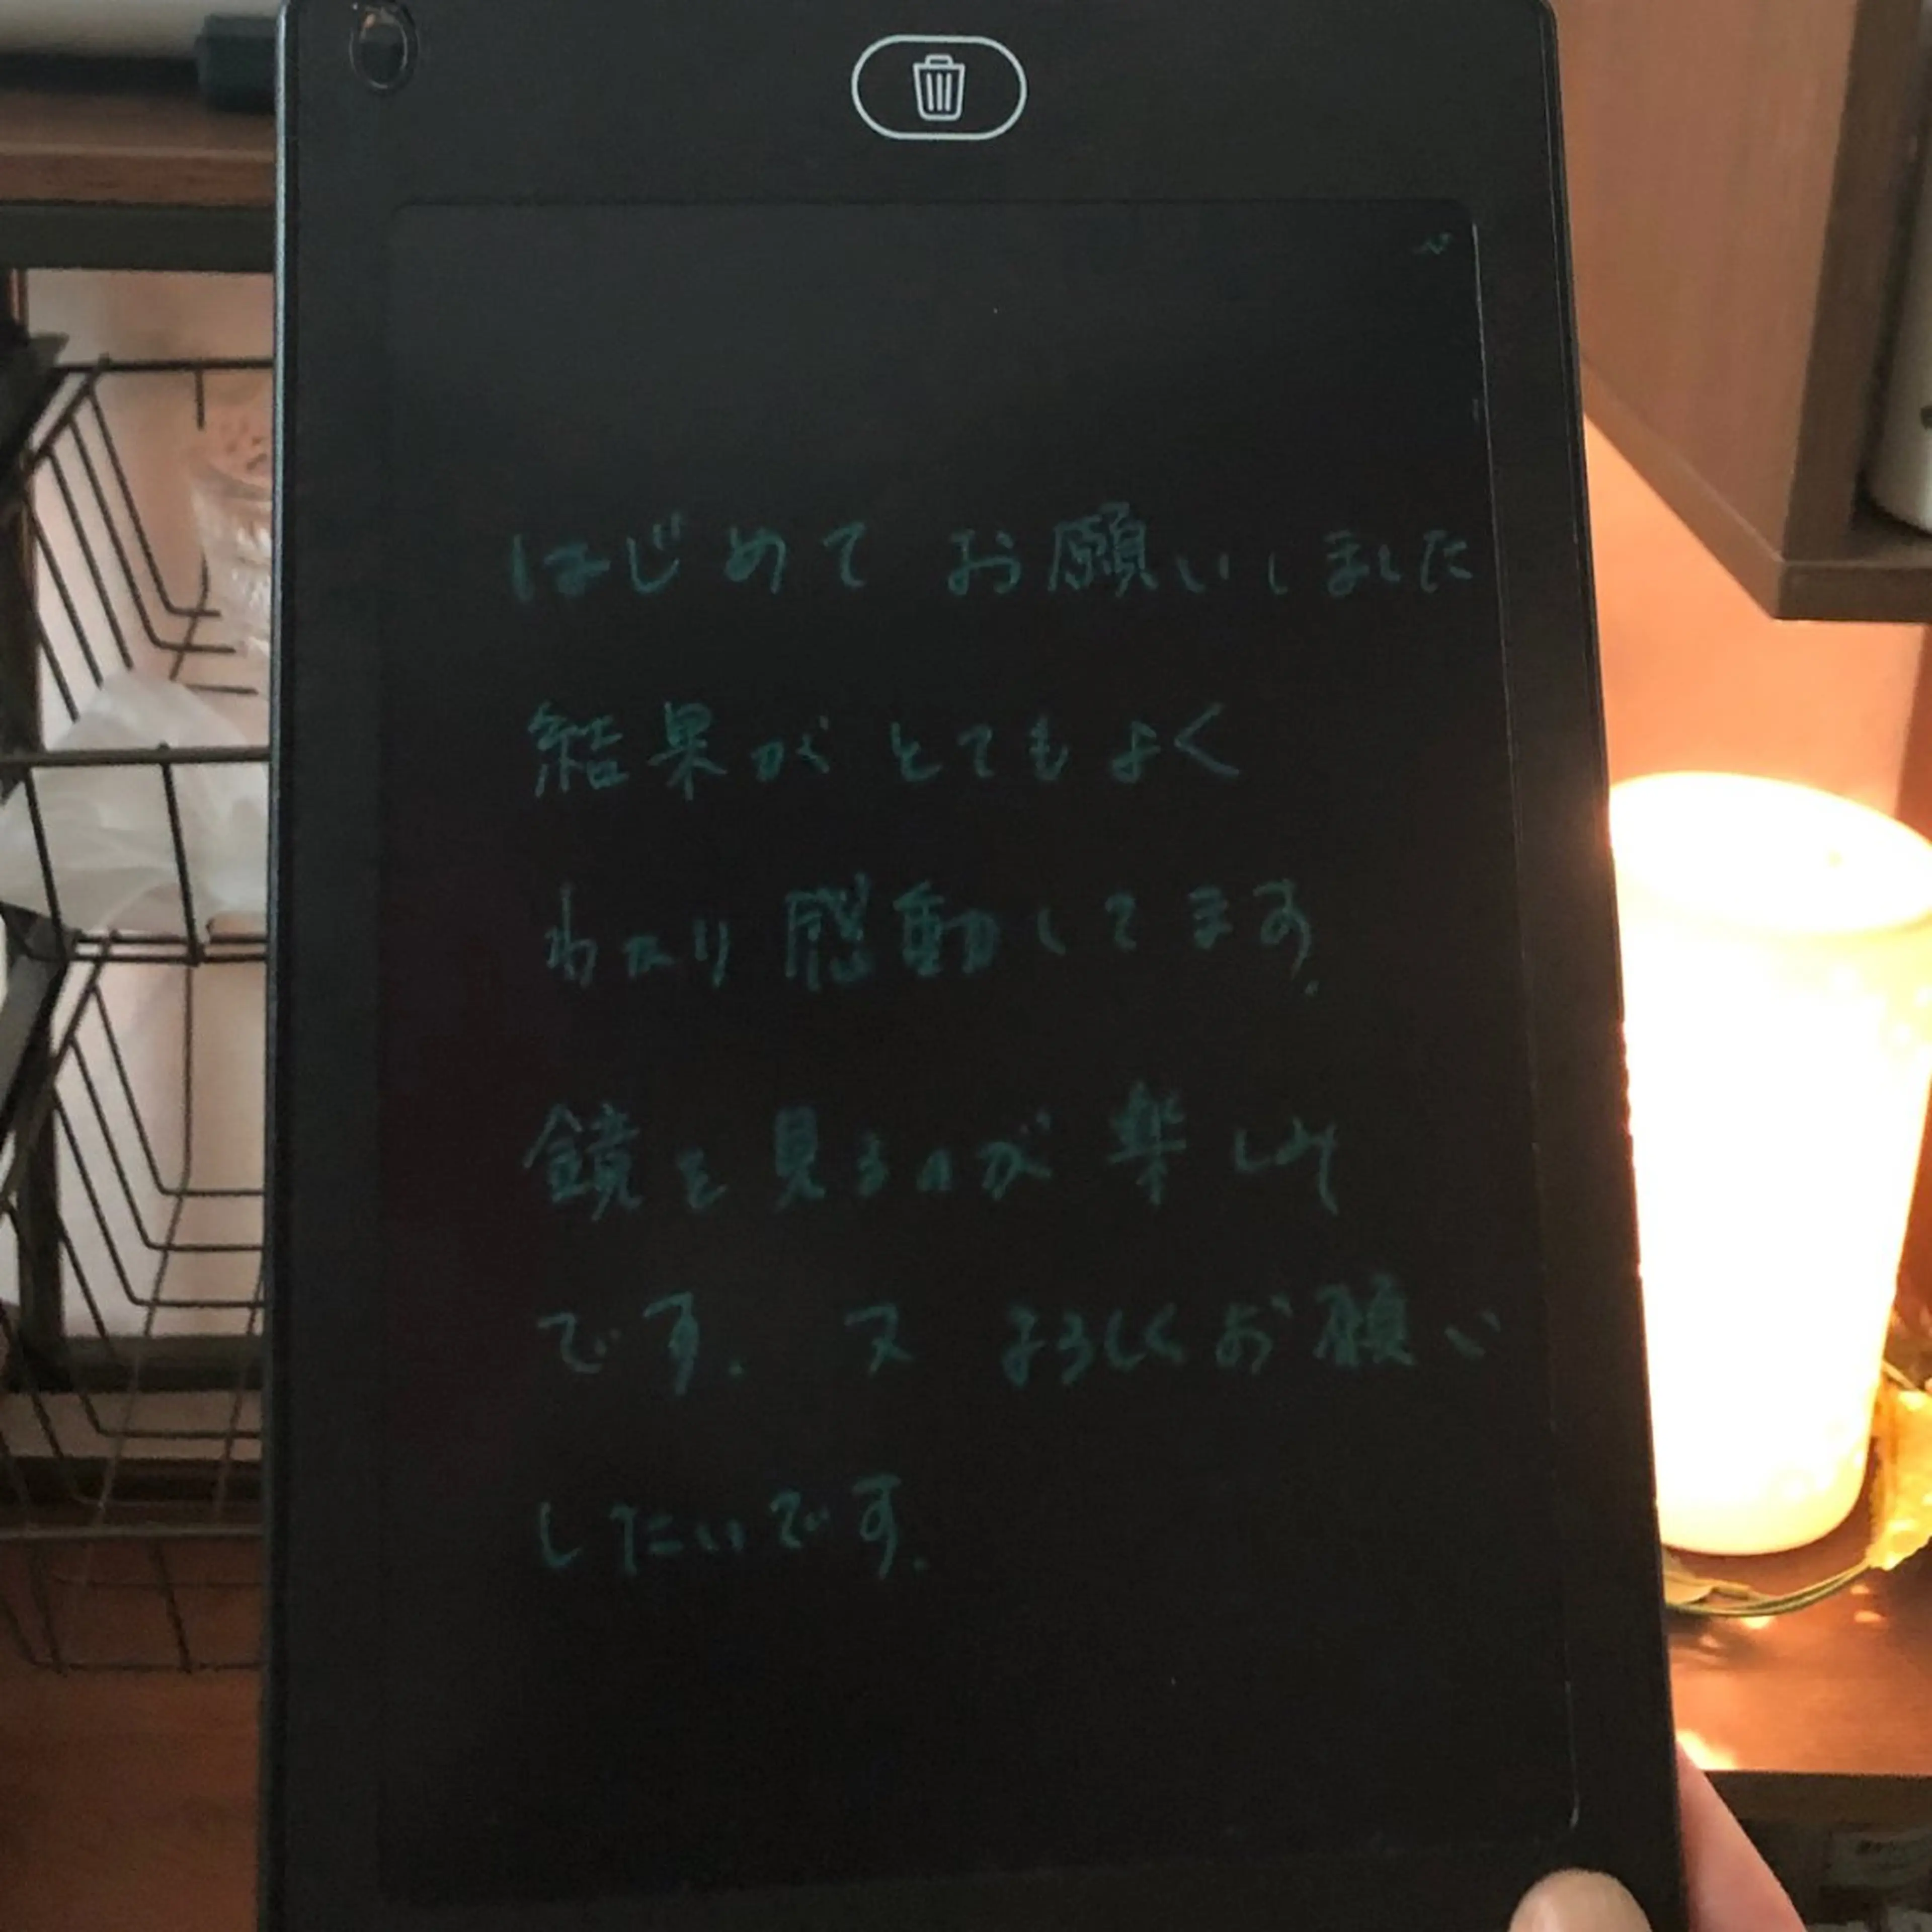 はじめて お願いしました
結果が とてもよく
感動してます.
鏡を見るのが 楽しみ
です. 又 よろしくお願い
したいです.